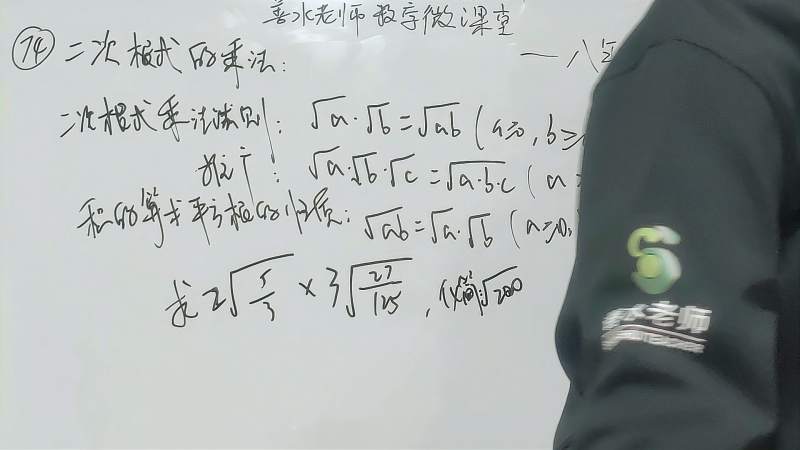 善水老师数学微课堂
74 二次根式的乘法: — 八年
二次根式乘法法则: √a·√b=√ab (a≥0, b≥
推广: √a·√b·√c=√a·b·c (a≥
积的算术平方根的性质: √ab=√a·√b (a≥0,
求 2√5/3 × 3√27/125, 化简: √200
水老师